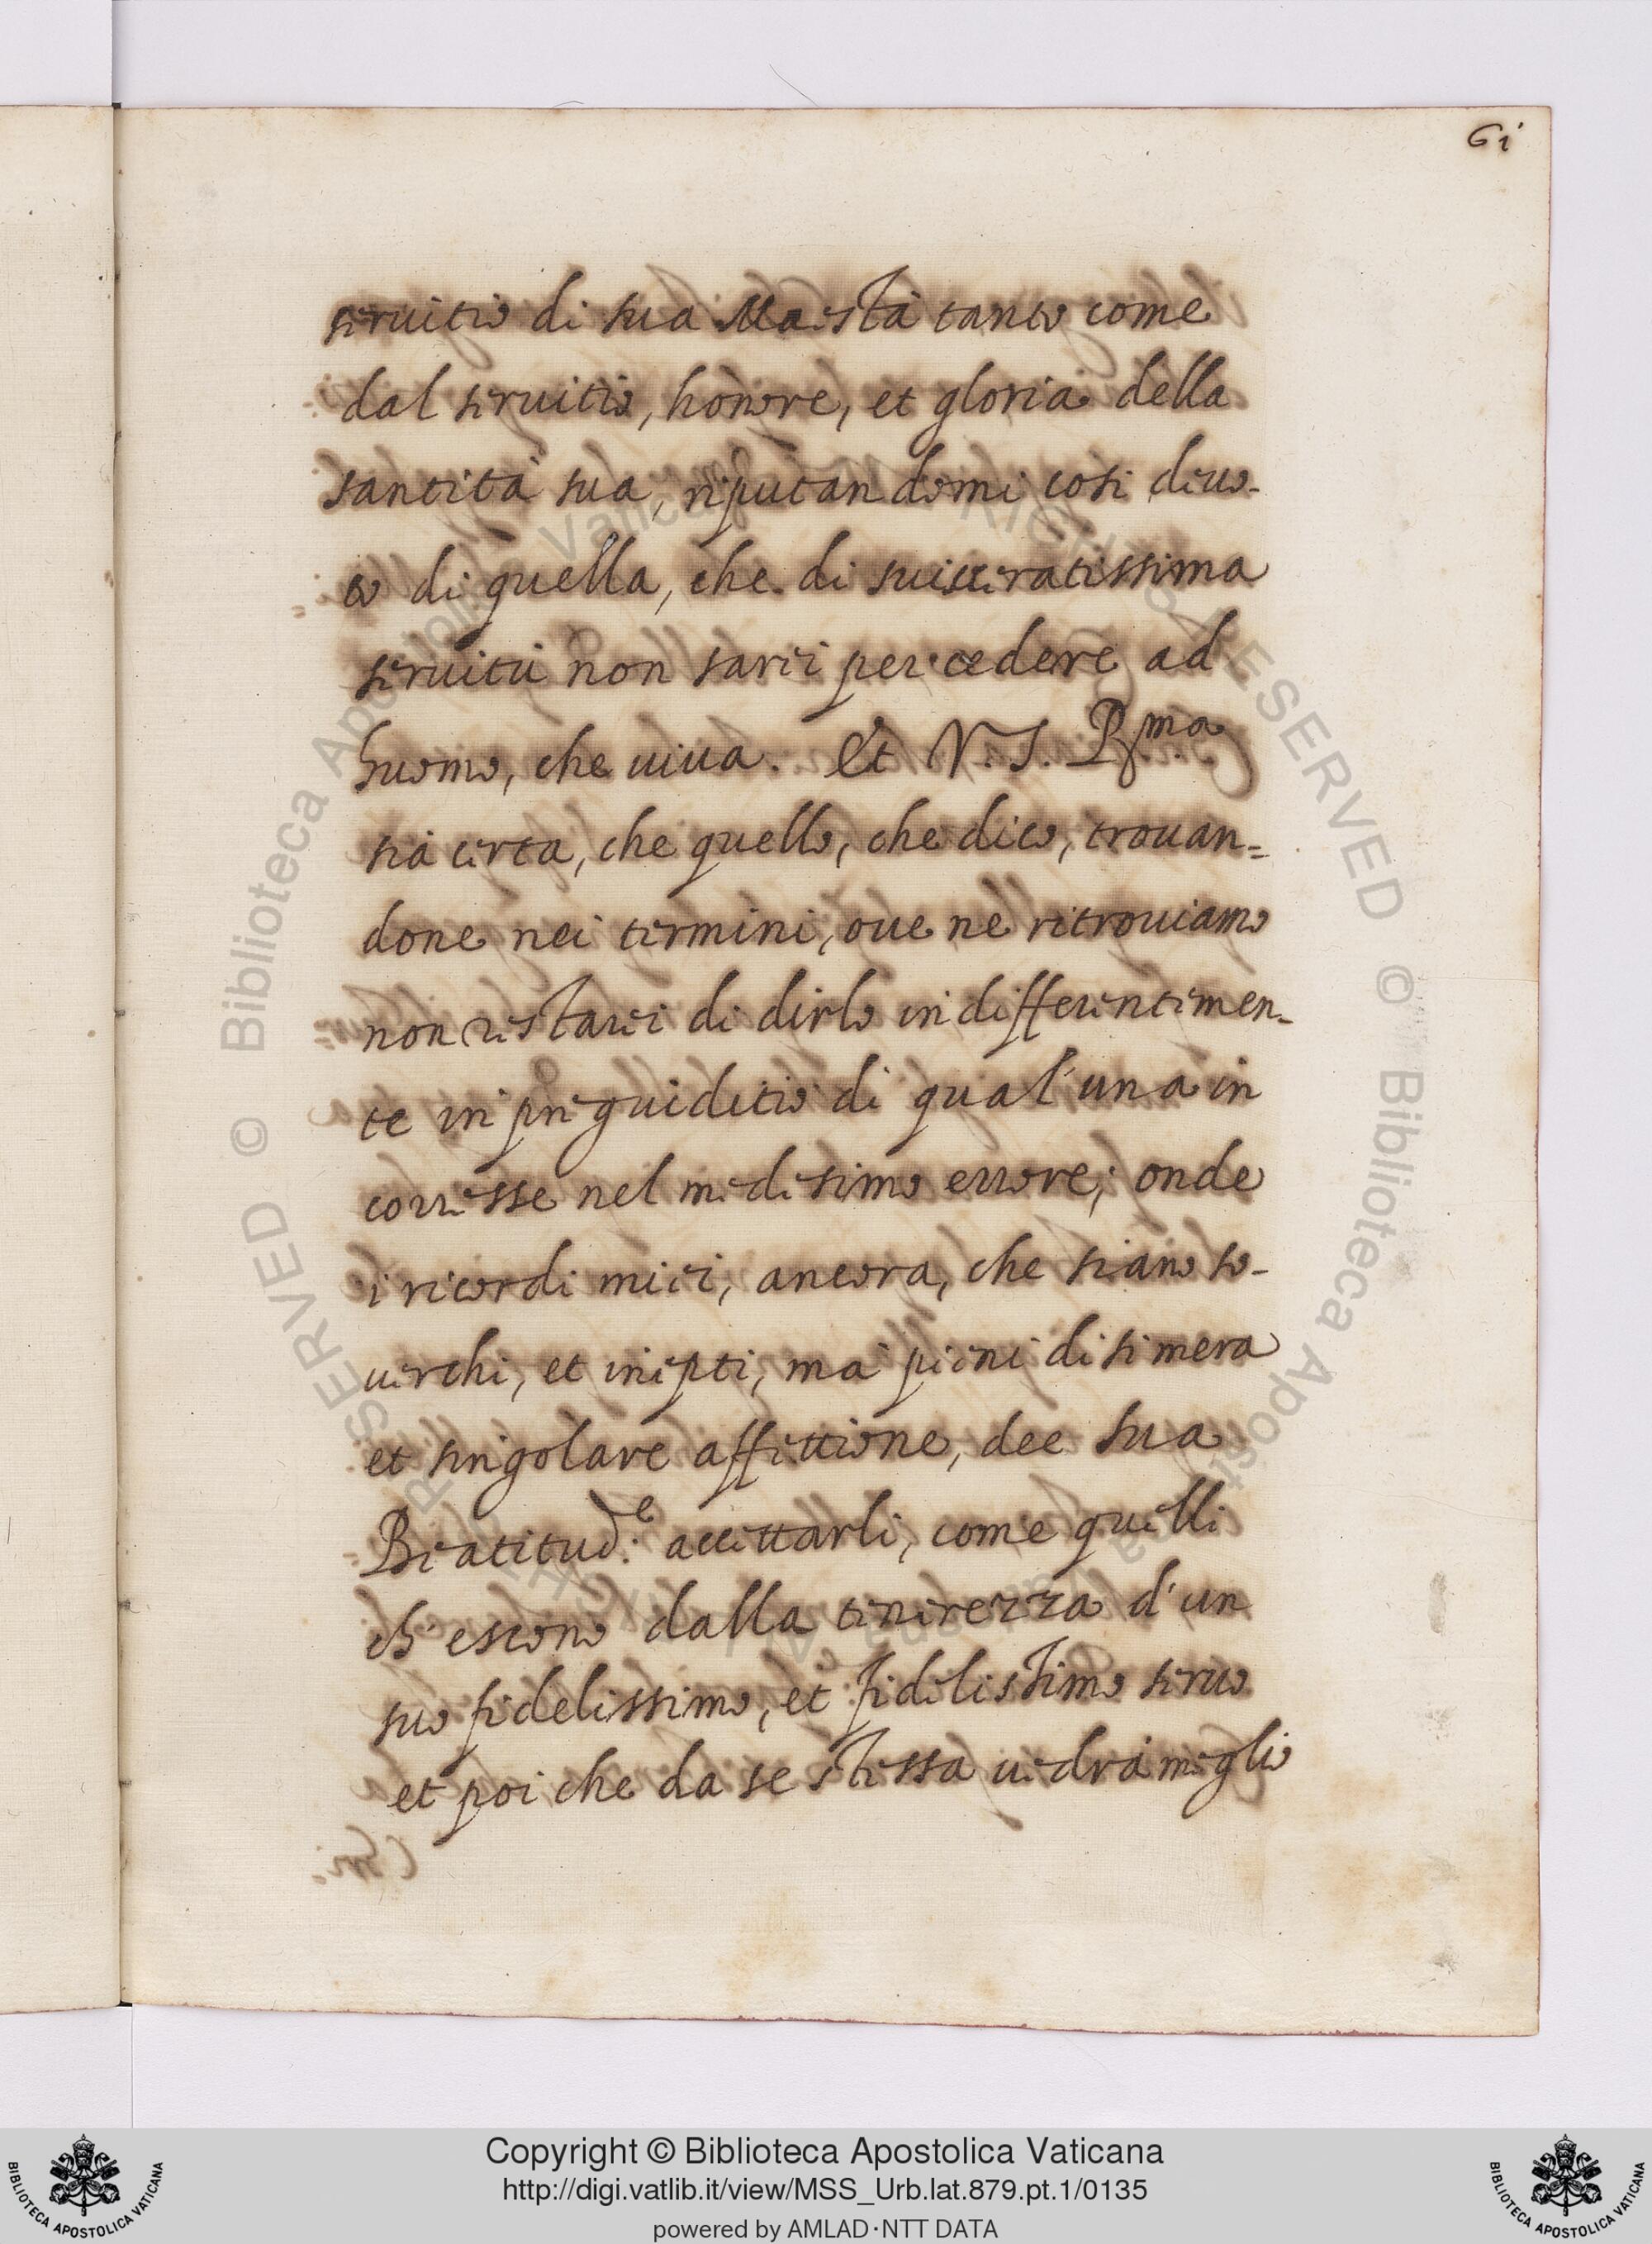 61
seruitio di sua Maestà tanto come
dal seruitio, honore, et gloria della
santità sua, riputandomi così diuo-
to di quella, che di suisceratissima
seruitù non sarei per cedere ad
huomo, che uiua. Et V. S. R.ma
sia certa, che quello, che dico, trouan=
done nei termini, oue ne ritrouiamo
non restarei di dirlo indifferentemen-
te in pregiuditio di qual'una in
corresse nel medesimo errore; onde
i ricordi miei, ancora, che siano so-
uerchi, et inepti, ma pieni di si mera
et singolare affettione, dee sua
Beatitud.e accettarli, come quelli
ch'escono dalla tenerezza d'un
suo fidelissimo, et fidelissimo seruo
et poi che da se stessa uedrà meglio
Copyright © Biblioteca Apostolica Vaticana
http://digi.vatlib.it/view/MSS_Urb.lat.879.pt.1/0135
powered by AMLAD·NTT DATA